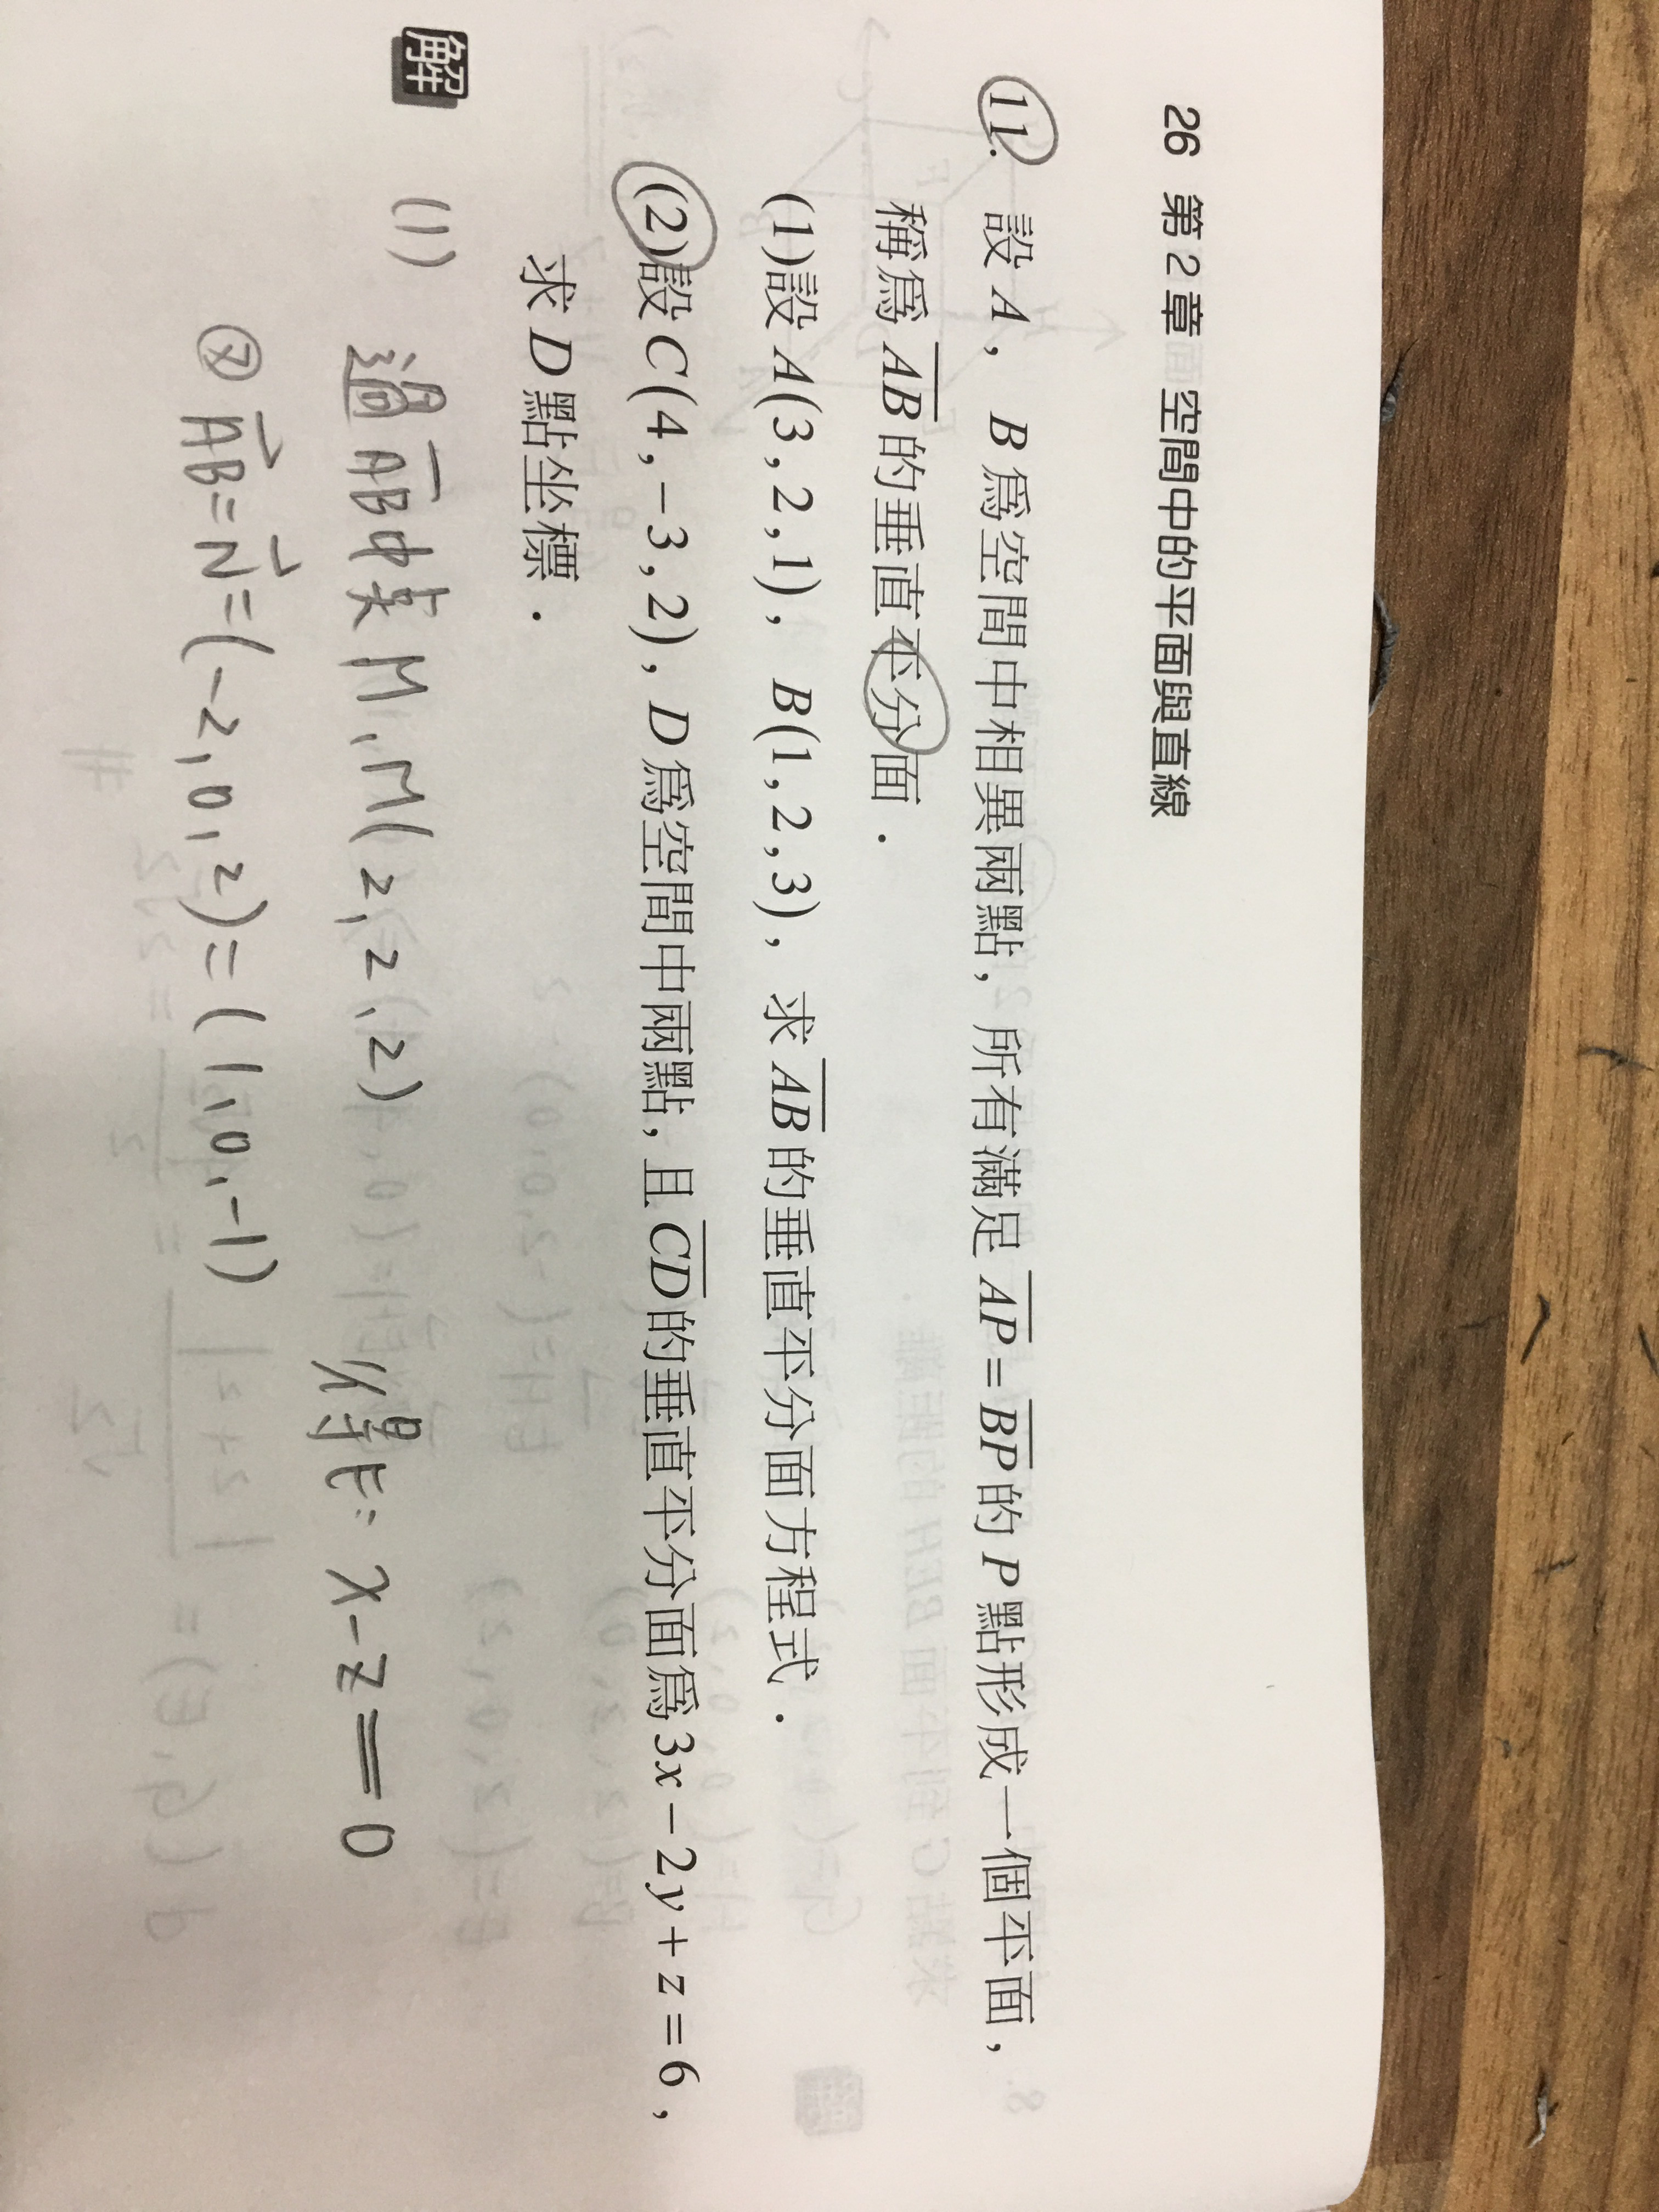 26 第2章 空間中的平面與直線
11. 設 A，B 爲空間中相異兩點，所有滿足 AP=BP 的 P 點形成一個平面，
稱爲 AB 的垂直平分面．
(1)設 A(3,2,1)，B(1,2,3)，求 AB 的垂直平分面方程式．
(2)設 C(4,-3,2)，D 爲空間中兩點，且 CD 的垂直平分面爲 3x-2y+z=6，
求 D 點坐標．
解 (1) 過AB中点M,M(2,2,2) 得E: x-z=0
又 AB=N=(-2,0,2)=(1,0,-1)